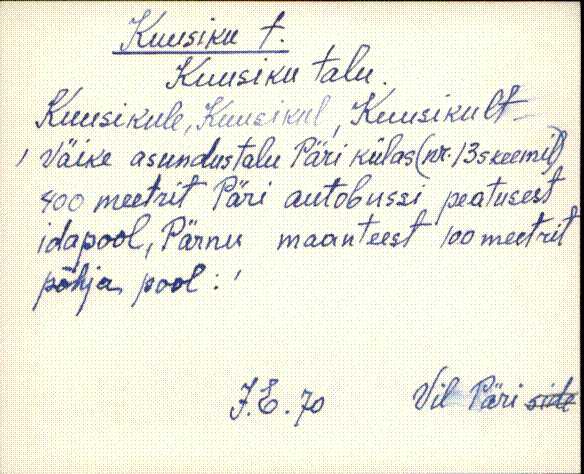 Kuusiku t.
Kuusiku talu.
Kuusikule, Kuusikul, Kuusikult
, Väike asundustalu Päri külas (nr. 13 skeemil)
400 meetrit Päri autobussi peatusest
idapool, Pärnu maanteest 100 meetrit
põhja pool : '
J.E. 70 Vil Päri side